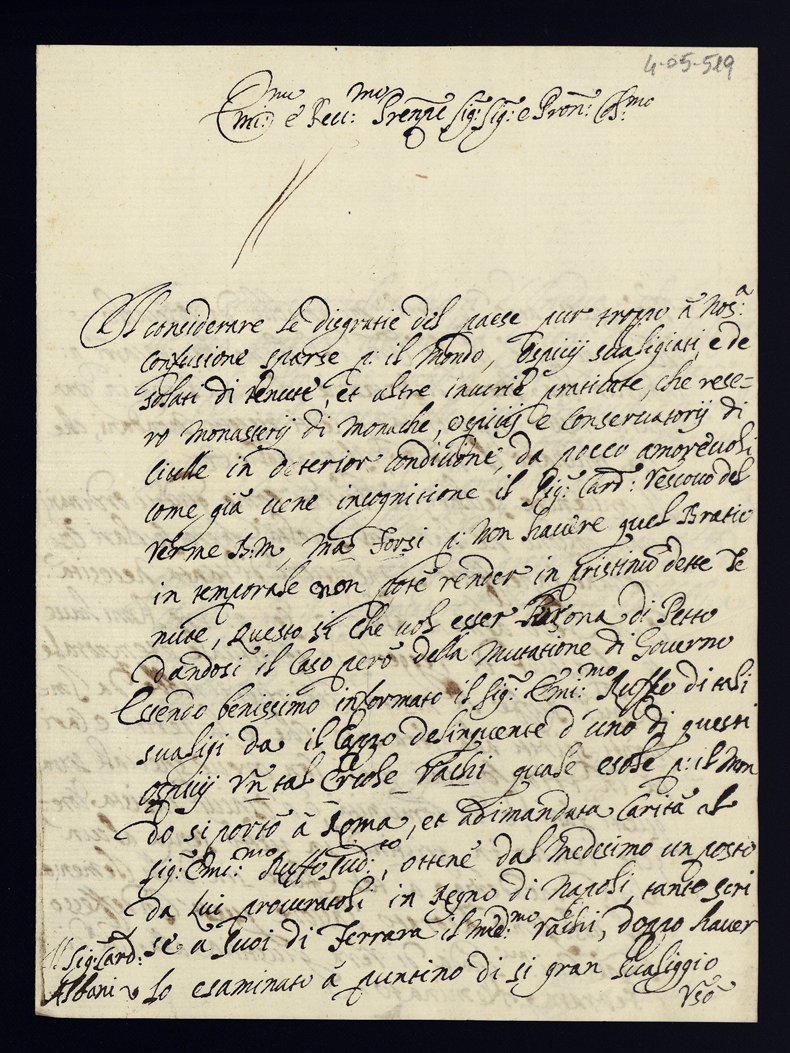 4-05-519
Emi:mo e Reu:mo Prenpe Sig: Sig: e Pron: Col:mo
Il considerare le disgratie del paese pur troppo à Nos:a
confusione sparse p: il Mondo, Ospicij sualigiati, e de
solati di tenute, et altre inurie praticate, che rese=
ro Monasterij di Monache, Ospicij e Conseruatorij di
Citelle in deterior conditione, da pocco amoreuoli
come già uene incognitione il Sig: Card: Vescouo del
Verme B.M, Ma Forsi p: Non hauere quel Bratio
in temporale non potè render in pristino dette te
nute, Questo si che uol esser Persona di Petto
dandosi il Caso però della Mutatione di Gouerno
Essendo benissimo informato il Sig: Emi:mo Ruffo di tali
sualigi da il Cappo delinquente d'uno di questi
ospicij Vn tal Ercole Vachi quale esole p: il Mon
do si portò à Roma, et adimandata Carità al
Sig: Emi:mo Ruffo Sud:to, ottene dal Medesimo un posto
da lui procuratoli in Regno di Napoli, tanto scri
se à Suoi di Ferrara il med:mo Vachi, doppo hauer
lo esaminato à puntino di si gran sualiggio
Sig: Card:
Albani
Vso